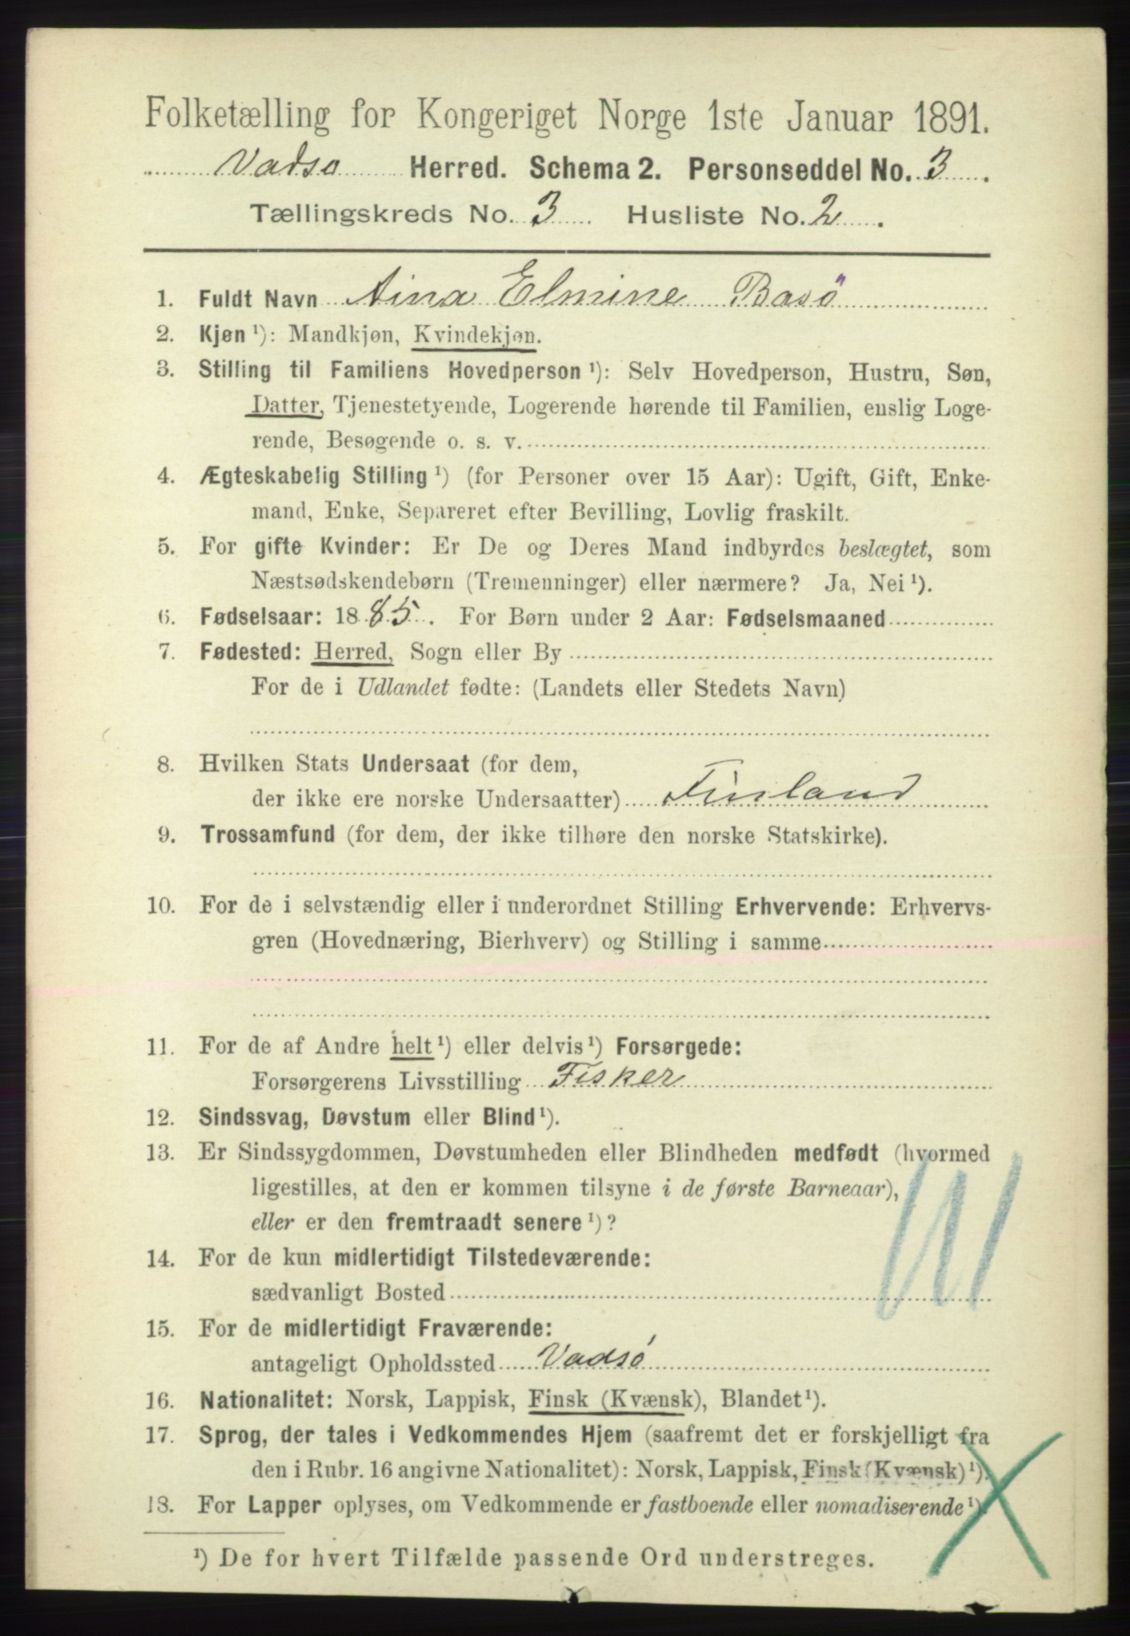 Folketælling for Kongeriget Norge 1ste Januar 1891.
Vadsø Herred. Schema 2. Personseddel No. 3.
Tællingskreds No. 3 Husliste No. 2.
1. Fuldt Navn Aina Elmine Basö
2. Kjøn ¹): Mandkjøn, Kvindekjøn.
3. Stilling til Familiens Hovedperson ¹): Selv Hovedperson, Hustru, Søn,
Datter, Tjenestetyende, Logerende hørende til Familien, enslig Loge-
rende, Besøgende o. s. v.
4. Ægteskabelig Stilling ¹) (for Personer over 15 Aar): Ugift, Gift, Enke-
mand, Enke, Separeret efter Bevilling, Lovlig fraskilt.
5. For gifte Kvinder: Er De og Deres Mand indbyrdes beslægtet, som
Næstsødskendebørn (Tremenninger) eller nærmere? Ja, Nei ¹).
6. Fødselsaar: 1885. For Børn under 2 Aar: Fødselsmaaned
7. Fødested: Herred, Sogn eller By
For de i Udlandet fødte: (Landets eller Stedets Navn)
8. Hvilken Stats Undersaat (for dem,
der ikke ere norske Undersaatter) Finland
9. Trossamfund (for dem, der ikke tilhøre den norske Statskirke).
10. For de i selvstændig eller i underordnet Stilling Erhvervende: Erhvervs-
gren (Hovednæring, Bierhverv) og Stilling i samme
11. For de af Andre helt ¹) eller delvis ¹) Forsørgede:
Forsørgerens Livsstilling Fisker
12. Sindssvag, Døvstum eller Blind ¹).
13. Er Sindssygdommen, Døvstumheden eller Blindheden medfødt (hvormed
ligestilles, at den er kommen tilsyne i de første Barneaar),
eller er den fremtraadt senere ¹)?
14. For de kun midlertidigt Tilstedeværende:
sædvanligt Bosted
15. For de midlertidigt Fraværende:
antageligt Opholdssted Vadsø
16. Nationalitet: Norsk, Lappisk, Finsk (Kvænsk), Blandet ¹).
17. Sprog, der tales i Vedkommendes Hjem (saafremt det er forskjelligt fra
den i Rubr. 16 angivne Nationalitet): Norsk, Lappisk, Finsk (Kvænsk) ¹).
18. For Lapper oplyses, om Vedkommende er fastboende eller nomadiserende ¹).
¹) De for hvert Tilfælde passende Ord understreges.